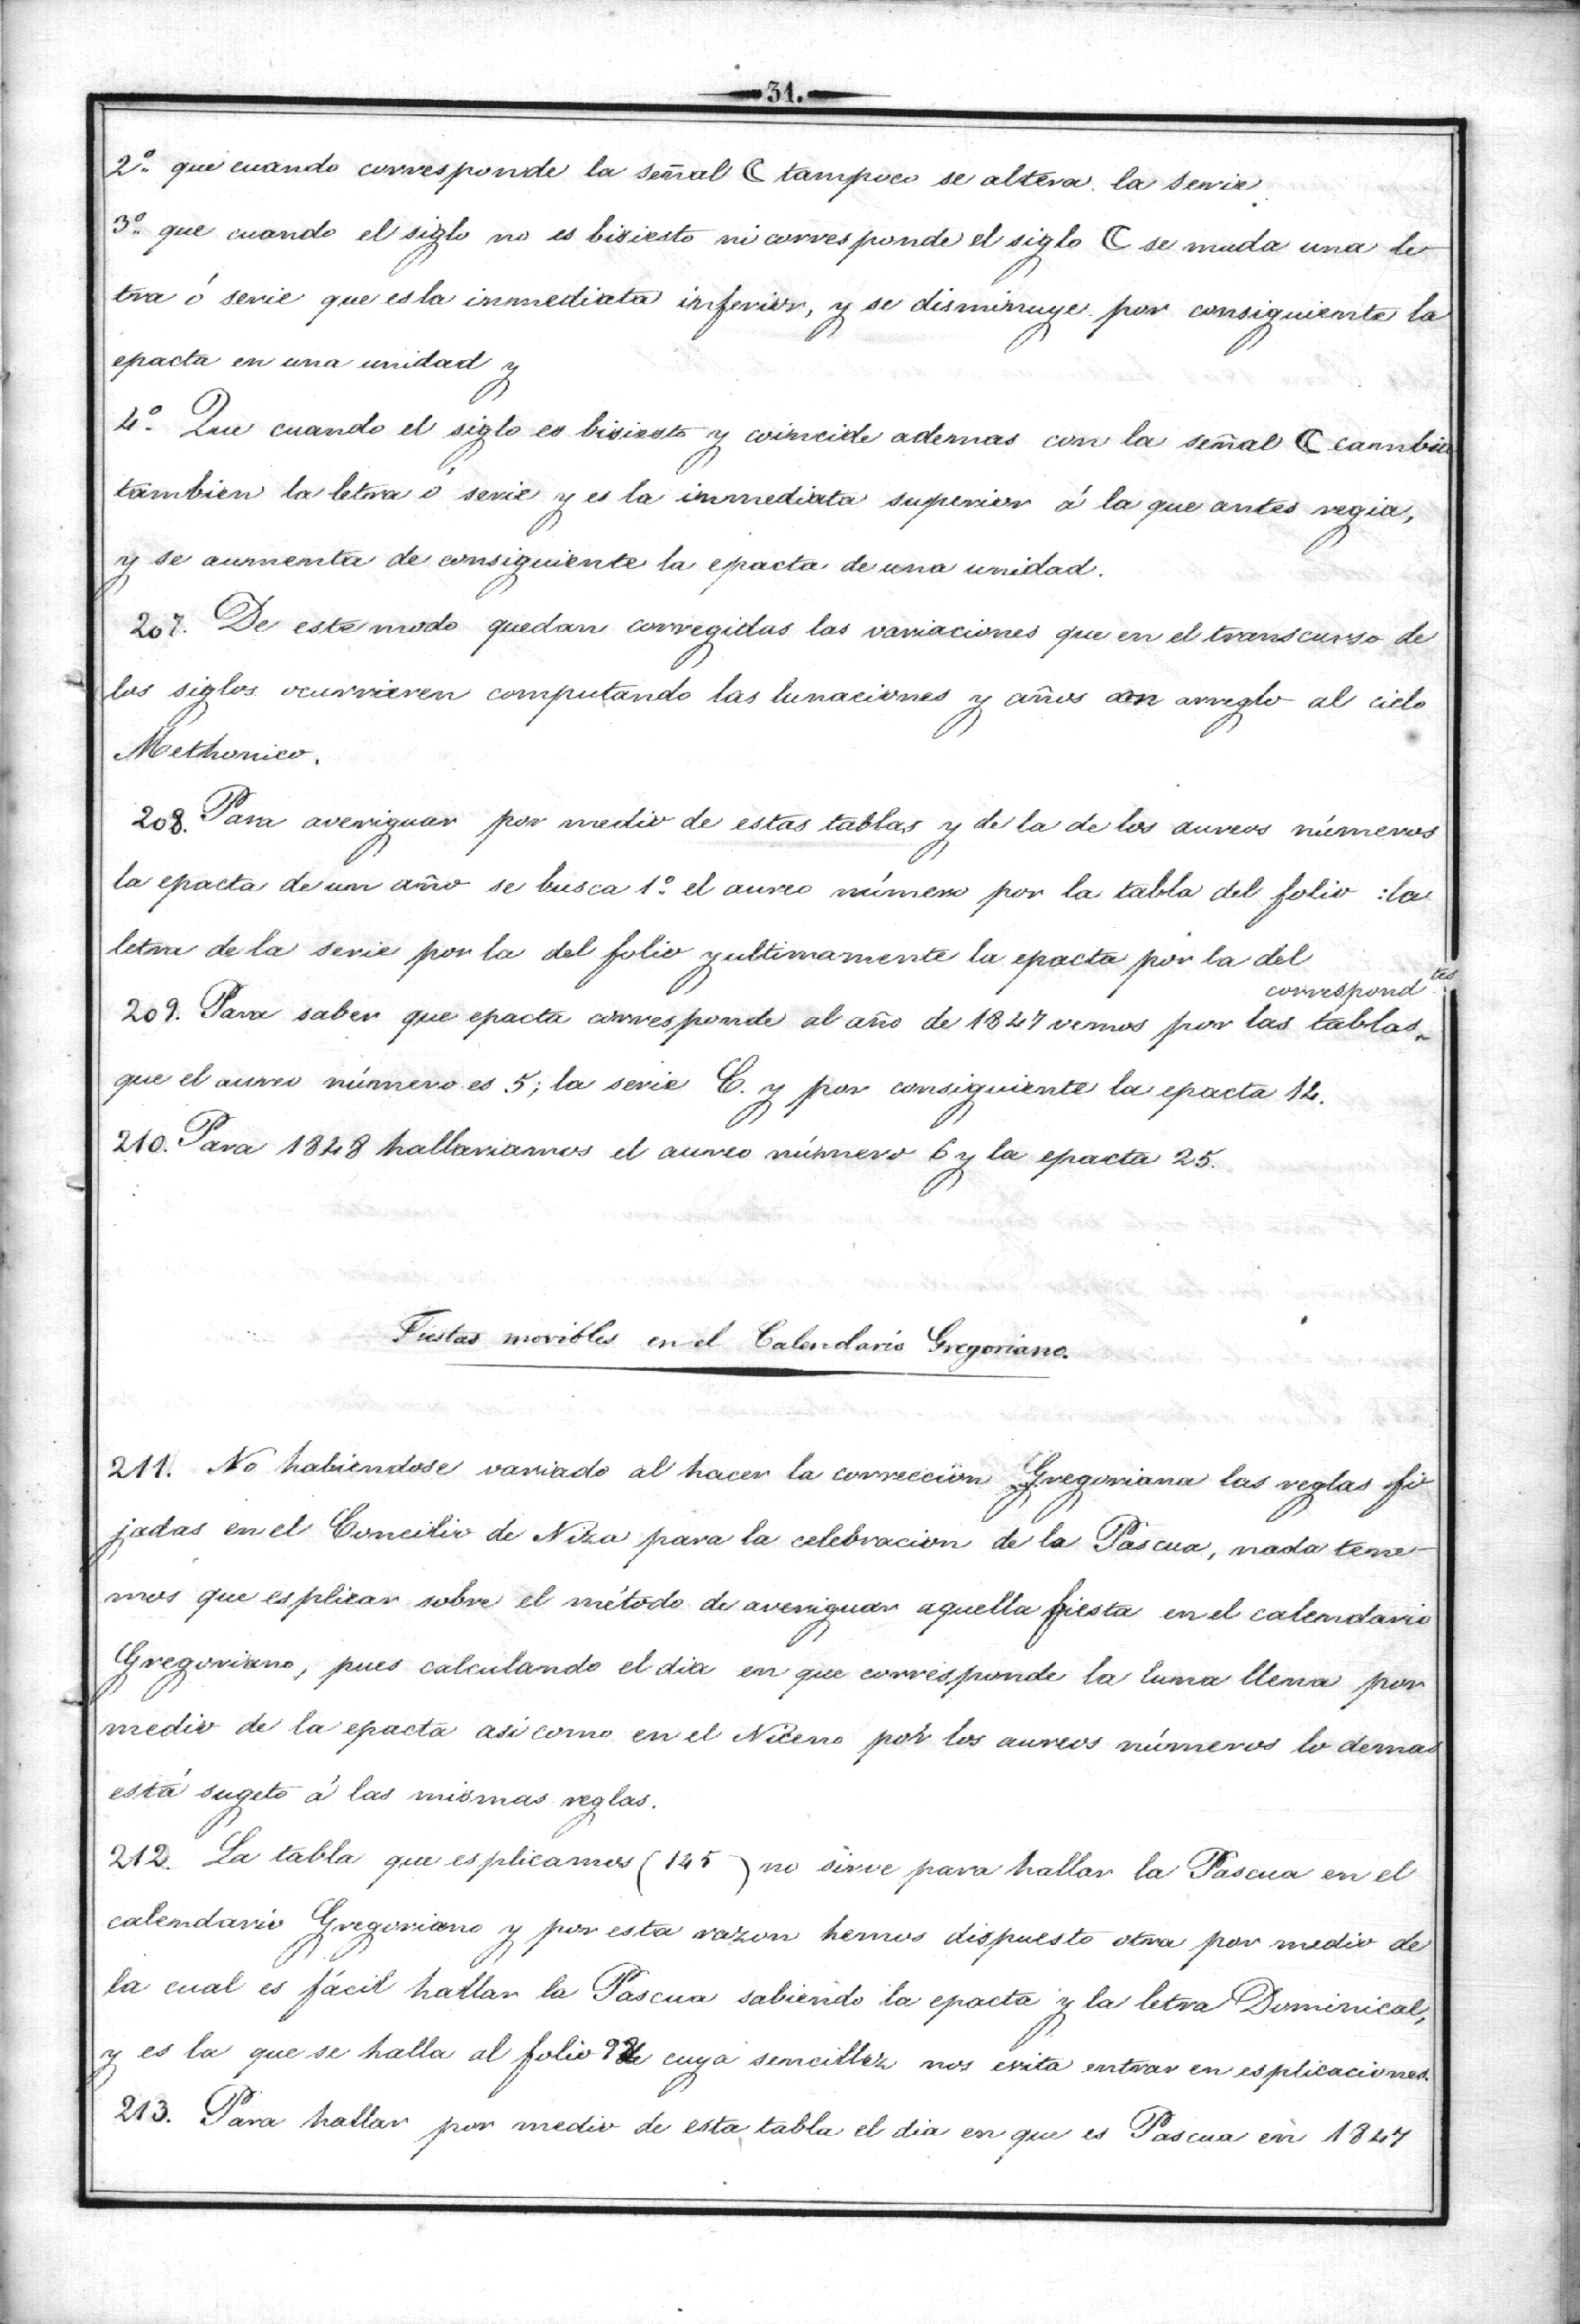 31.
2º que cuando corresponde la señal ☾ tampoco se altera la serie.
3º que cuando el siglo no es bisiesto ni corresponde el siglo ☾ se muda una le-
tra ó serie que es la inmediata inferior, y se disminuye por consiguiente la
epacta en una unidad y
4º Que cuando el siglo es bisiesto y coincide ademas con la señal ☾ cambia
tambien la letra ó serie y es la inmediata superior á la que antes regia,
y se aumenta de consiguiente la epacta de una unidad.
207. De este modo quedan corregidas las variaciones que en el transcurso de
los siglos ocurrieren computando las lunaciones y años con arreglo al ciclo
Methonico.
208. Para averiguar por medio de estas tablas y de la de los aureos números
la epacta de un año se busca 1º el aureo número por la tabla del folio : la
letra de la serie por la del folio y ultimamente la epacta por la del
correspondtes
209. Para saber que epacta corresponde al año de 1847 vemos por las tablas
que el aureo número es 5; la serie C. y por consiguiente la epacta 14.
210. Para 1848 hallariamos el aureo número 6 y la epacta 25.
Fiestas movibles en el Calendario Gregoriano.
211. No habiendose variado al hacer la correccion Gregoriana las reglas fi
jadas en el Concilio de Niza para la celebracion de la Pascua, nada tene-
mos que esplicar sobre el método de averiguar aquella fiesta en el calendario
Gregoriano, pues calculando el dia en que corresponde la luna llena por
medio de la epacta asi como en el Niceno por los aureos números lo demas
está sugeto á las mismas reglas.
212. La tabla que esplicamos (145 ) no sirve para hallar la Pascua en el
calendario Gregoriano y por esta razon hemos dispuesto otra por medio de
la cual es fácil hallar la Pascua sabiendo la epacta y la letra Dominical,
y es la que se halla al folio cuya sencillez nos evita entrar en esplicaciones.
213. Para hallar por medio de esta tabla el dia en que es Pascua en 1847